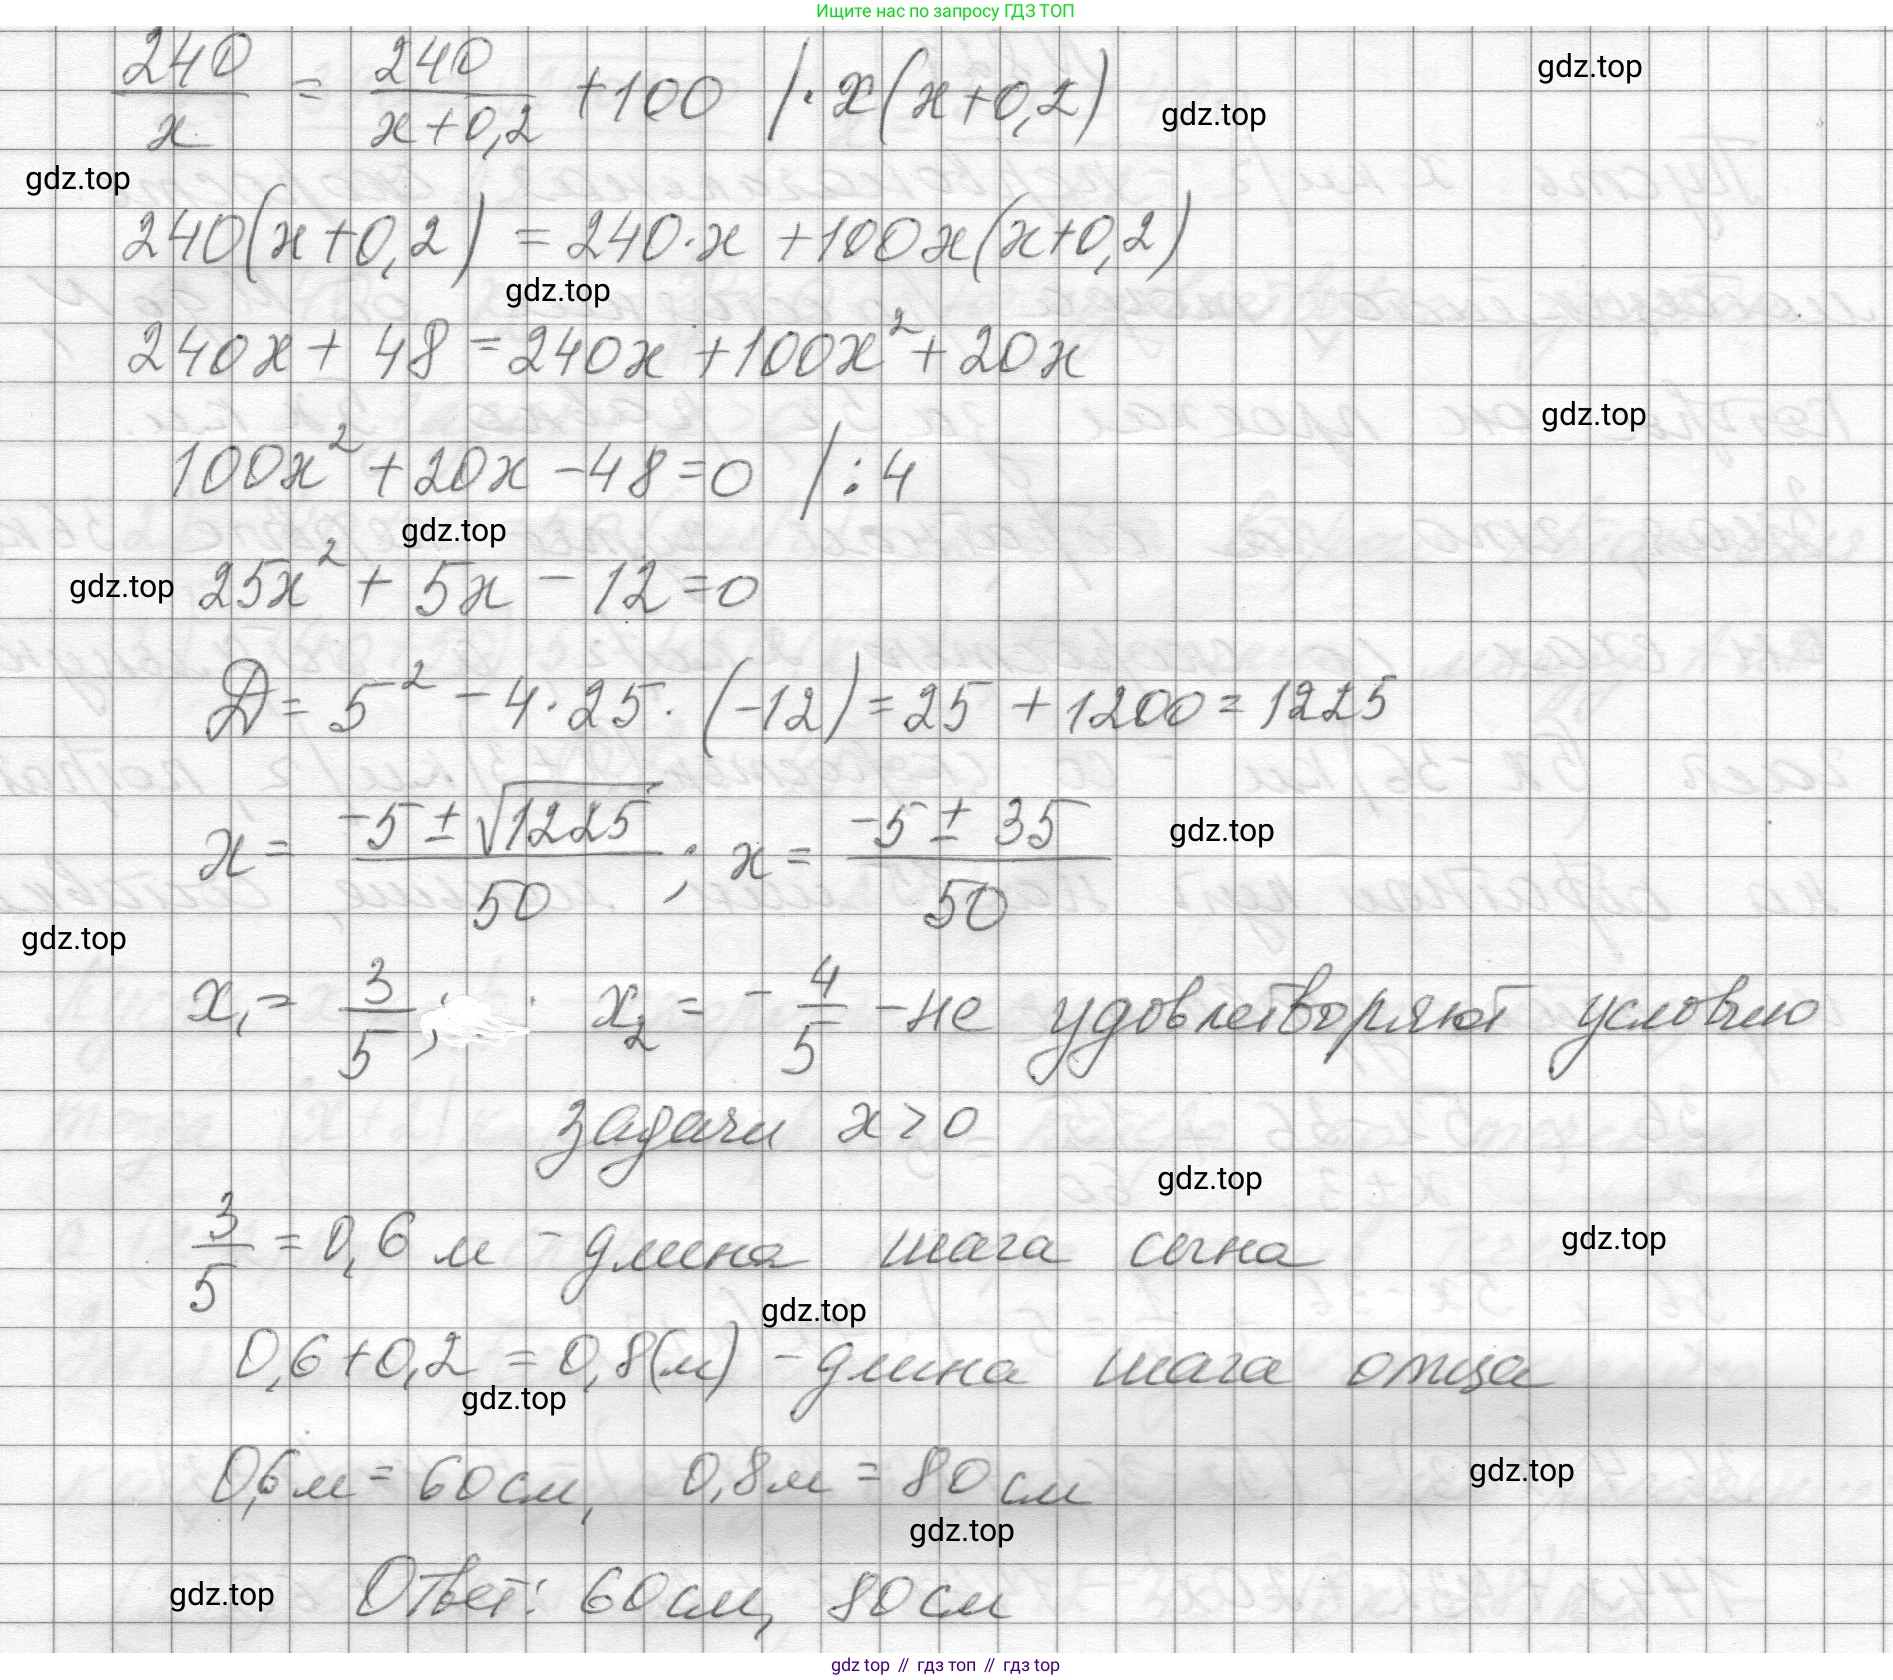 Ищите нас по запросу ГДЗ ТОП
240/x = 240/(x+0,2) +100 /· x(x+0,2)
gdz.top
gdz.top
gdz.top
240(x+0,2) = 240·x +100x(x+0,2)
gdz.top
240x + 48 = 240x +100x² + 20x
gdz.top
100x² +20x -48=0 /:4
gdz.top
gdz.top
25x² + 5x - 12=0
Д= 5² - 4·25·(-12)=25 +1200= 1225
x= (-5 ± √1225)/50 ; x = (-5 ± 35)/50
gdz.top
gdz.top
x₁= 3/5; x₂ = - 4/5 -не удовлетворяют условию
задачи x>0
gdz.top
3/5 = 0,6 м - длина шага сына
gdz.top
gdz.top
0,6+0,2 = 0,8(м) - длина шага отца
gdz.top
0,6м = 60см, 0,8м = 80см
gdz.top
gdz.top
gdz.top
Ответ: 60см, 80см
gdz top // гдз топ // гдз top